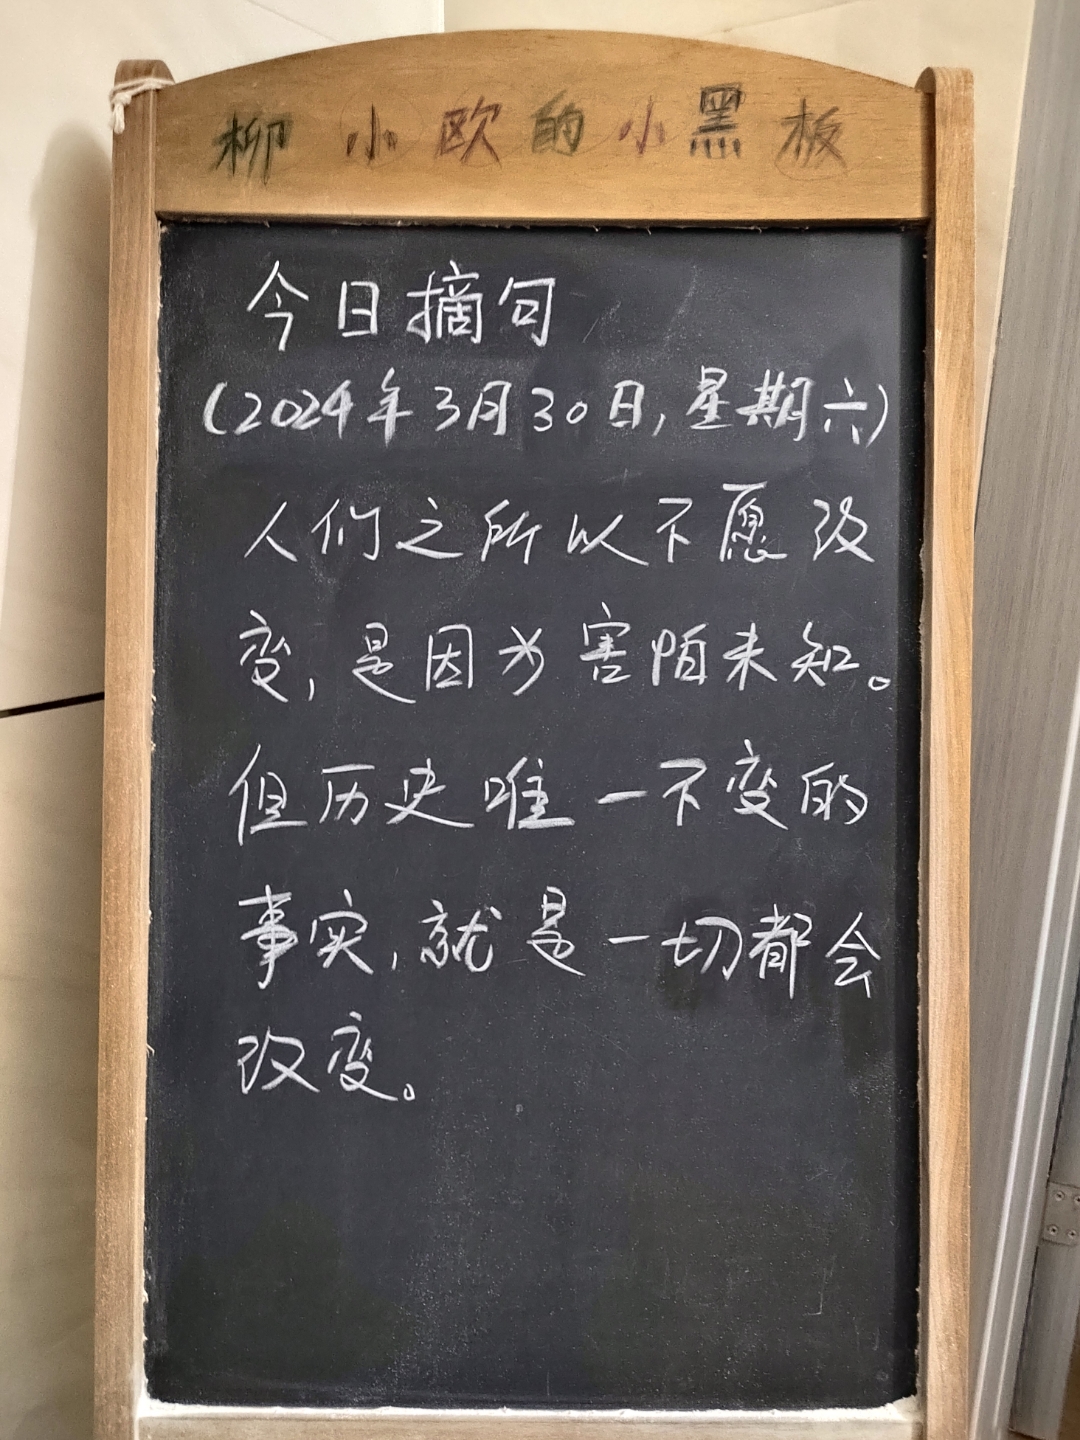 柳小欧的小黑板
今日摘句
(2024年3月30日,星期六)
人们之所以不愿改
变,是因为害怕未知。
但历史唯一不变的
事实,就是一切都会
改变。